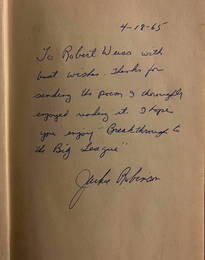 4-18-65
To Robert Weiss with
best wishes. Thanks for
sending the poem I thoroughly
enjoyed reading it. I hope
you enjoy "Breakthrough to
the Big League"
Jackie Robinson